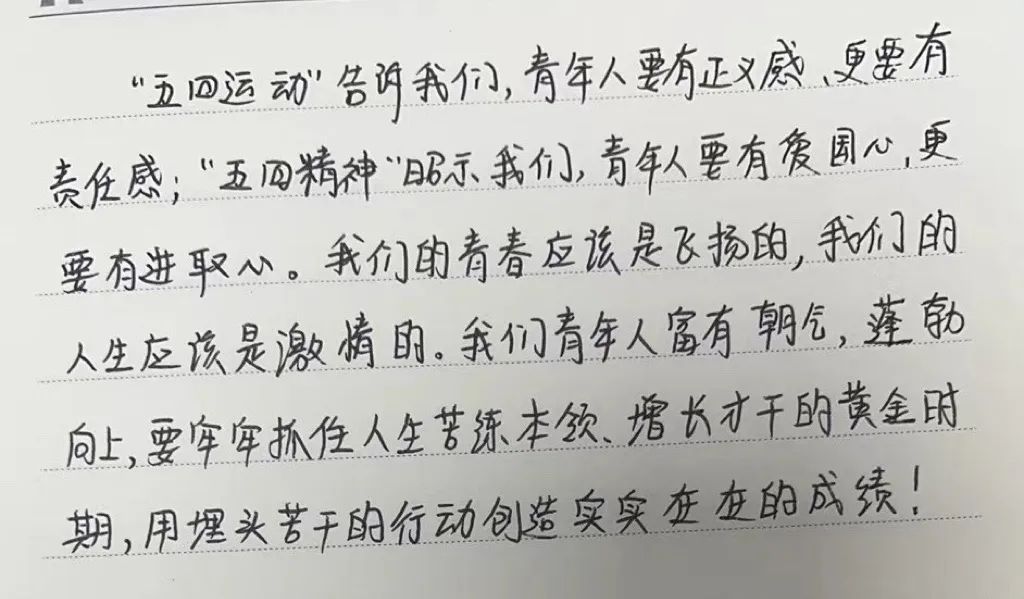 “五四运动”告诉我们,青年人要有正义感、更要有
责任感;“五四精神”昭示我们,青年人要有爱国心,更
要有进取心。我们的青春应该是飞扬的,我们的
人生应该是激情的。我们青年人富有朝气,蓬勃
向上,要牢牢抓住人生苦练本领、增长才干的黄金时
期,用埋头苦干的行动创造实实在在的成绩!